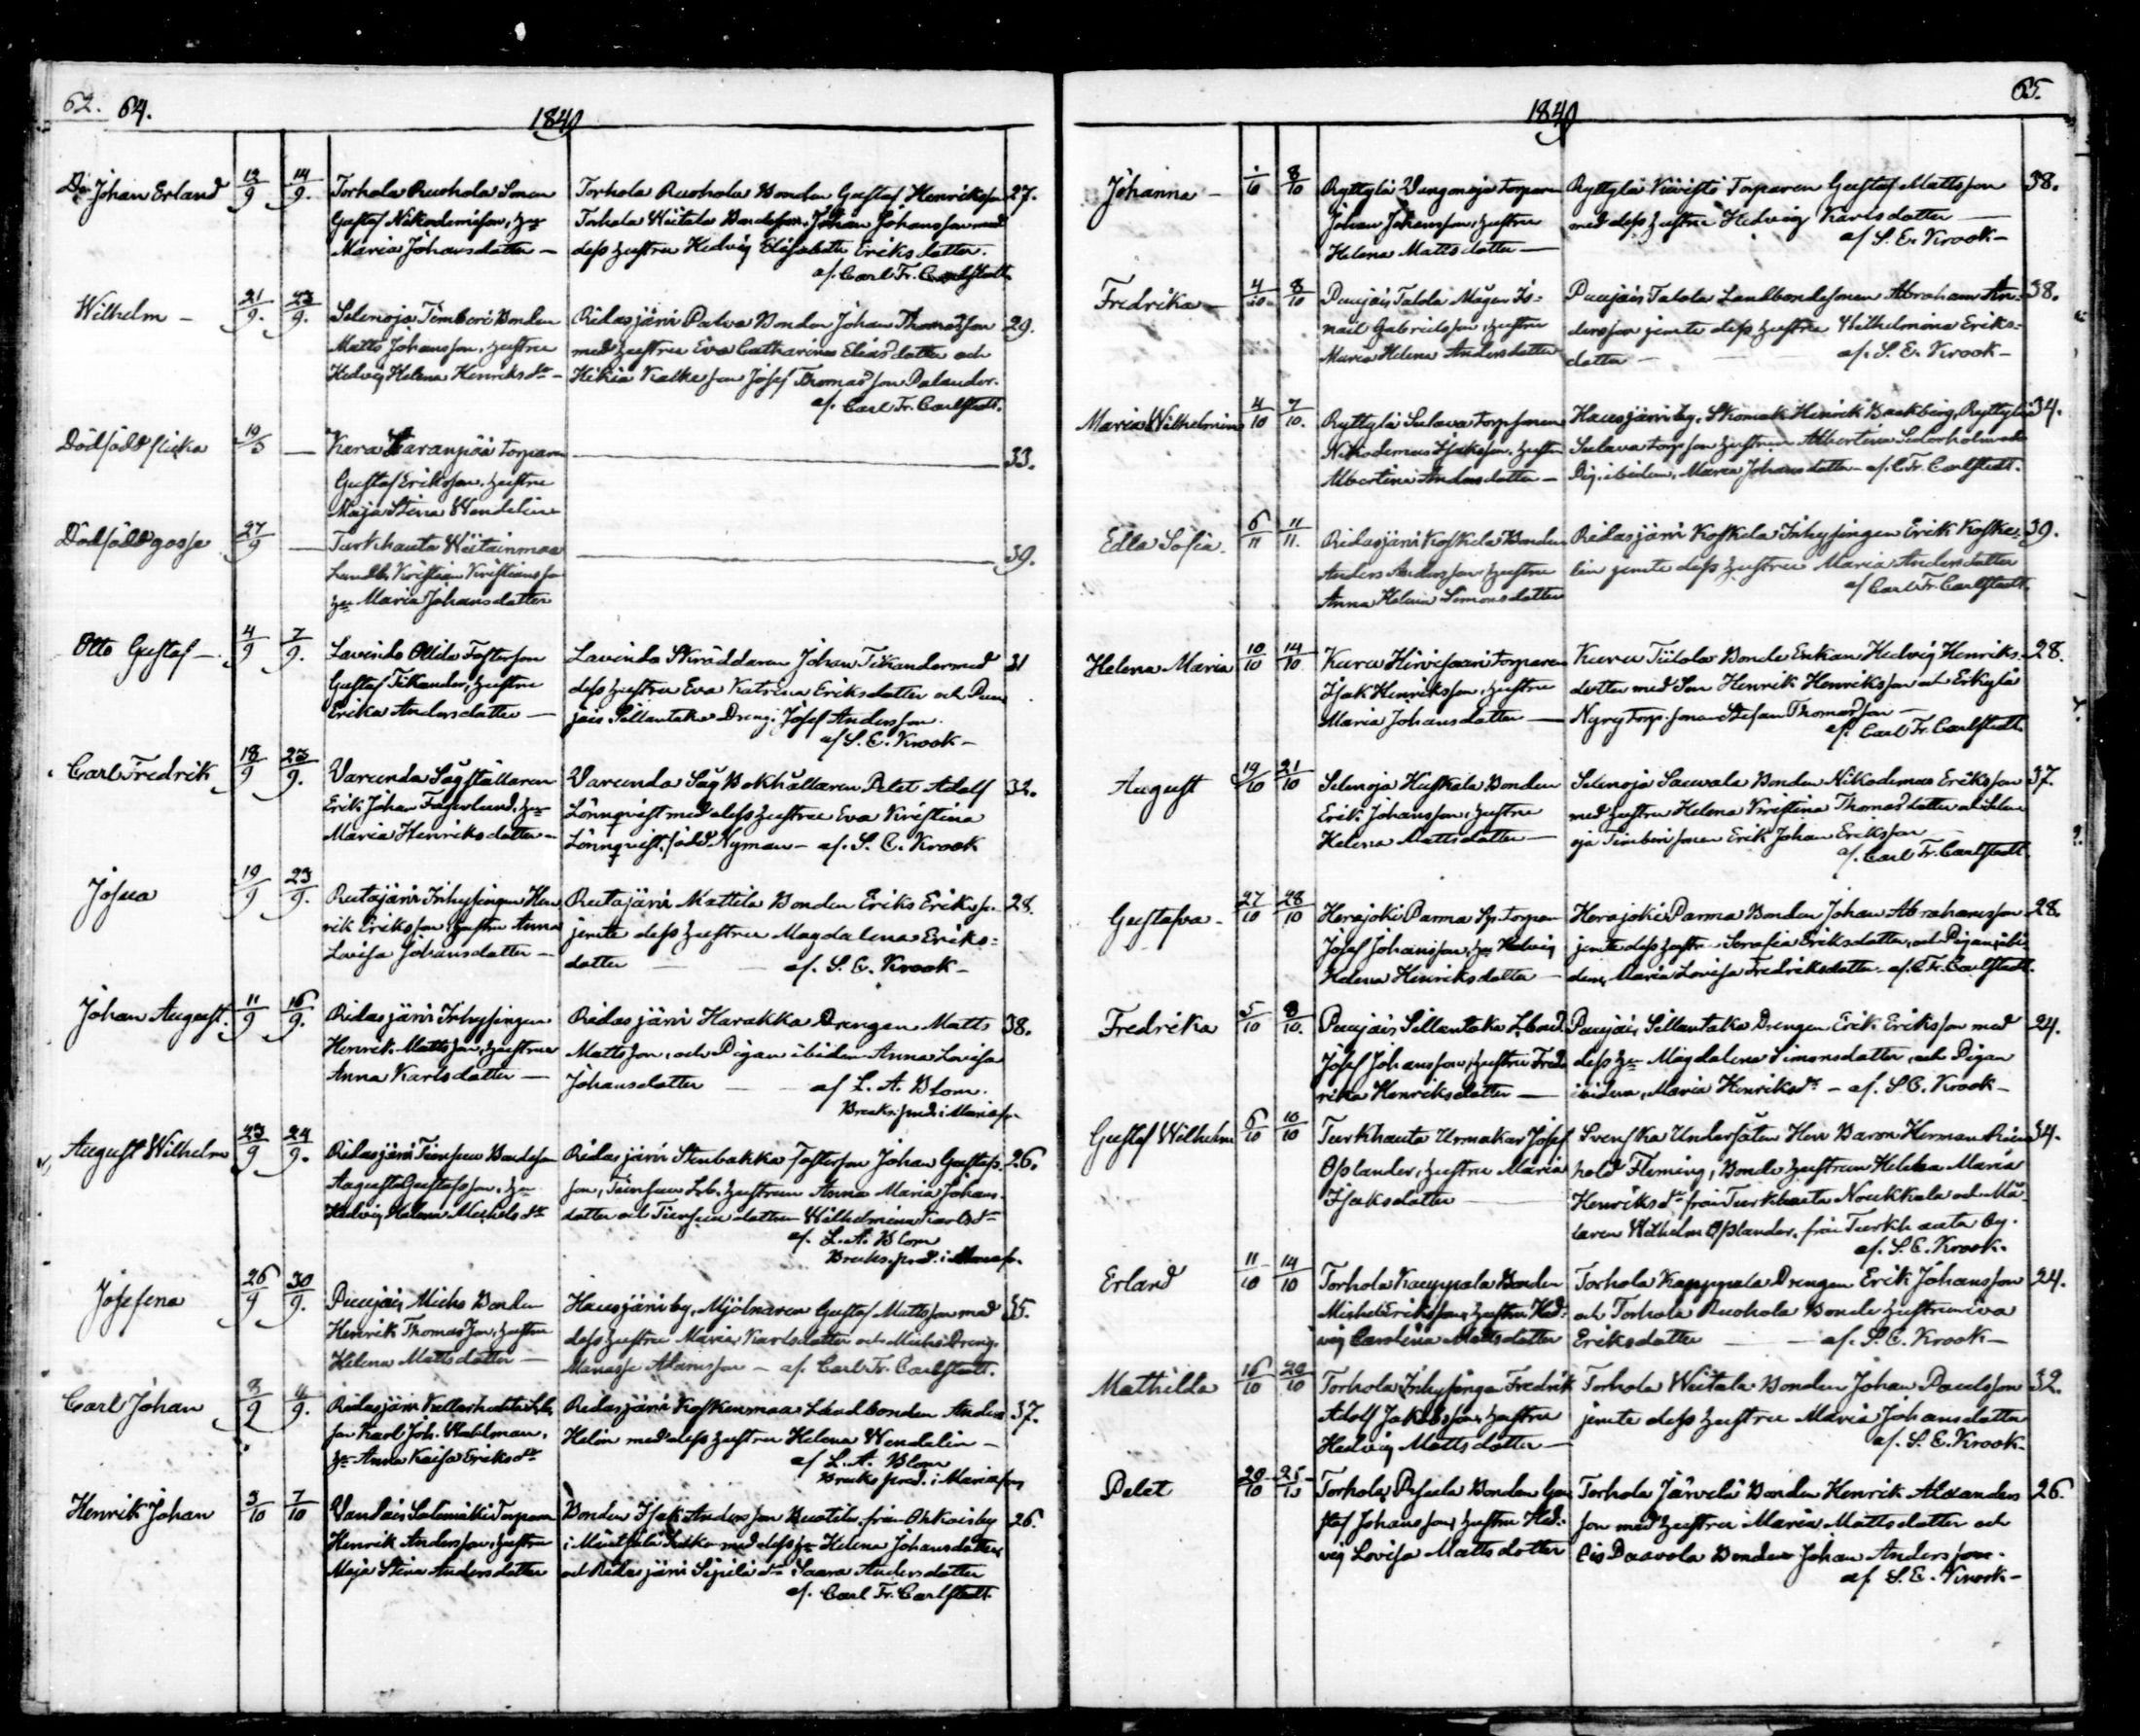 62. 64.
1840
Johan Erland 12/9 14/9. Torhola Ruohola Sonen Torhola Ruohola Bonden Gustaf Henriksson 27.
Gustaf Nikodemisson, hu Torhola Wiitala Bondeson Johan Johansson med
Maria Johansdotter — dess hustru Hedvig Elisabeth Eriksdotter.
af Carl Fr. Carlstedt
Wilhelm — 21/9. 23/9. Selenoja Timberi Bonden Ridasjärvi Palva Bonden Johan Thomasson 29.
Matts Johansson, hustru med hustru Eva Catharina Eliasdotter och
Hedvig Helena Henriksdr — Hikiä Kalke son Josef Thomasson Palander.
af. Carl Fr. Carlstedt.
Dödfödd flicka 19/9 — Kara torparen — 33.
Gustaf Eriksson, hustru
Maja Stina Wendelin
Dödfödd gosse 27/9 — Turkhauta Wiitainmaa — 39.
Landb. Kristian Kristiansson
hu Maria Johansdotter
Otto Gustaf — 4/9 7/9. Lavinto Ollila Fosterson Lavinto Skräddaren Johan Tikander med 31
Gustaf Tikander, hustru dess hustru Eva Katrina Eriksdotter och Puu
Erika Andersdotter — jais Sillantaka Dreng. Josef Andersson.
af S. E. Krook —
Carl Fredrik 18/9 23/9. Varunda Sågställaren Varunda Såg Bokhållaren Petet Adolf 32.
Erik Johan Fagerlund, hu Lönnqvist med dess hustru Eva Kristina
Maria Henriksdotter — Lönnqvist, född Nyman — af. S. E. Krook
Josua 19/9 23/9. Rutajärvi Inhysingen Hen Rutajärvi Mattila Bonden Eriks Eriks so. 28.
rik Eriksson, hustru Anna jemte dess hustru Magdalena Eriks=
Lovisa Johansdotter — dotter — af. S. E. Krook —
Johan August. 11/9 16/9. Ridasjärvi Inhysingen Ridasjärvi Harakka Drengen Matts 38.
Henrik Mattsson, hustru Mattsson, och Pigan ibidem Anna Lovisa
Anna Karlsdotter — Johansdotter — af L. A. Blom.
Bruks. pred. i Mariefo.
August Wilhelm 23/9 24/9. Ridasjärvi Bondeson Ridasjärvi Stenbakka Fosterson Johan Gustafs 26.
August Gustafsson, hu son, Lrb. hustrun Anna Maria Johans
Hedvig Helena Michelsdr dotter och dotter Wilhelmina Karlsdr
af. L. A. Blom
Bruks. pred. i Mariefo.
Josefina 26/9 30/9. Puujais Michs Bonden Hausjärvi by, Mjölnaren Gustaf Mattsson med 35.
Henrik Thomasson, hustru dess hustru Maria Karlsdotter och Michs Dreng.
Helena Mattsdotter — Manasse Adamsson — af. Carl Fr. Carlstedt.
Carl Johan 3/9 4/9. Ridasjärvi Ridasjärvi Koskenmaa Landbonden Anders 37.
son Karl Joh. Wahlman, Helin med dess hustru Helena Wendelin —
hu Anna Kaisa Eriksdr af L. A. Blom
Bruks pred. i Mariefors
Henrik Johan 3/10 7/10 Vantais Salomäki Torparen Bonden Isak Andersson från Ohkoisby 26.
Henrik Andersson, hustru i Mäntsälä Sokn med dess hu Helena Johansdotter
Maja Stina Andersdotter och Ridasjärvi Sipilä dr Saara Andersdotter
af. Carl Fr. Carlstedt.
65.
1840
Johanna — 1/10 8/10 Ryttylä torparen Ryttylä Torparen Gustaf Mattsson 38.
Johan Johansson, hustru med dess hustru Hedvig Karlsdotter —
Helena Mattsdotter — af S. E. Krook —
Fredrika — 4/10 8/10 Puujais Talola Mågen Is= Puujais Talola Landbondesonen Abraham An= 38.
mael Gabrielsson, hustru dersson jemte dess hustru Wilhelmina Eriks=
Maria Helena Andersdotter dotter — af. S. E. Krook —
Maria Wilhelmina 4/10 7/10. Ryttylä Sulava torpsonen Hausjärvi by, Skomak Henrik Backberg, Ryttylä 34.
Nikodemus Isaksson, hustru Sulava torp son hustrun Albertina
Albertina Andersdotter — Pig. ibidem, Maria Johansdotter — af. C. Fr. Carlstedt.
Edla Sofia. 6/11 11/11. Ridasjärvi Koskela Bonden Ridasjärvi Koskela Inhysingen Erik Koske= 39.
Anders Andersson, hustru lin jemte dess hustru Maria Andersdotter
Anna Helena Simonsdotter af Carl Fr. Carlstedt.
Helena Maria 10/10 14/10 Kuru Hirvisaari torparen Kuru Tiilola Bonde Enkan Hedvig Henriks 28.
Isak Henriksson, hustru dotter med Son Henrik Henriksson och Erkylä
Maria Johansdotter — Nyry torp. sonen Stefan Thomasson —
af. Carl Fr. Carlstedt.
August 19/10 21/10 Selenoja Huskala Bonden Selenoja Sauvala Bonden Nikodemus Eriksson 37.
Erik Johansson, hustru med hustru Helena Kristina Thomasdotter och Selen
Helena Mattsdotter — oja Timberi sonen Erik Johan Eriksson —
af. Carl Fr. Carlstedt.
Gustafva — 27/10 28/10 Herajoki Parma Sp. torparen Herajoki Parma Bonden Johan Abrahamsson 28.
Josef Johansson, hu Hedvig jemte dess hustru Serafia Eriksdotter, och Pigan ibi
Helena Henriksdotter — dem, Maria Lovisa Fredriksdotter — af. C. Fr. Carlstedt.
Fredrika 5/10 8/10. Puujais Sillantaka Lbond. Puujais Sillantaka Drengen Erik Eriksson med 24.
Josef Johansson, hustru Fred dess hu Magdalena Simonsdotter, och Pigan
rika Henriksdotter — ibidem, Maria Henriksdr — af. S E. Krook —
Gustaf Wilhelm 6/10 10/10 Turkhauta Urmakar Josef Svenska Undersåten Herr Baron Herman Rein 34.
Oslander, hustru Maria hold Fleming, Bonde hustrun Helena Maria
Isaksdotter — Henriksdr från Turkhauta Noukkala och Må
laren Wilhelm Oslander, från Turkhauta by.
af. S. E. Krook.
Erland 11/10 14/10 Torhola Kauppala Bonden Torhola Kauppala Drengen Erik Johansson 24.
Michel Eriksson, hustru Hed= och Torhola Ruohola Bonde hustrun Eva
vig Carolina Mattsdotter Eriksdotter — af. S. E. Krook —
Mathilda 16/10 20/10 Torhola Inhysinge Fredrik Torhola Wiitala Bonden Johan Paulsson 32.
Adolf Jakobsson, hustru jemte dess hustru Maria Johansdotter
Hedvig Mattsdotter — af. S. E. Krook.
Petet 20/10 25/10 Torhola Bonden Gu Torhola Järvelä Bonden Henrik Alexanders 26.
staf Johansson, hustru Hed= son med hustru Maria Mattsdotter och
vig Lovisa Mattsdotter Ois Paavola Bonden Johan Andersson.
af. S. E. Krook —